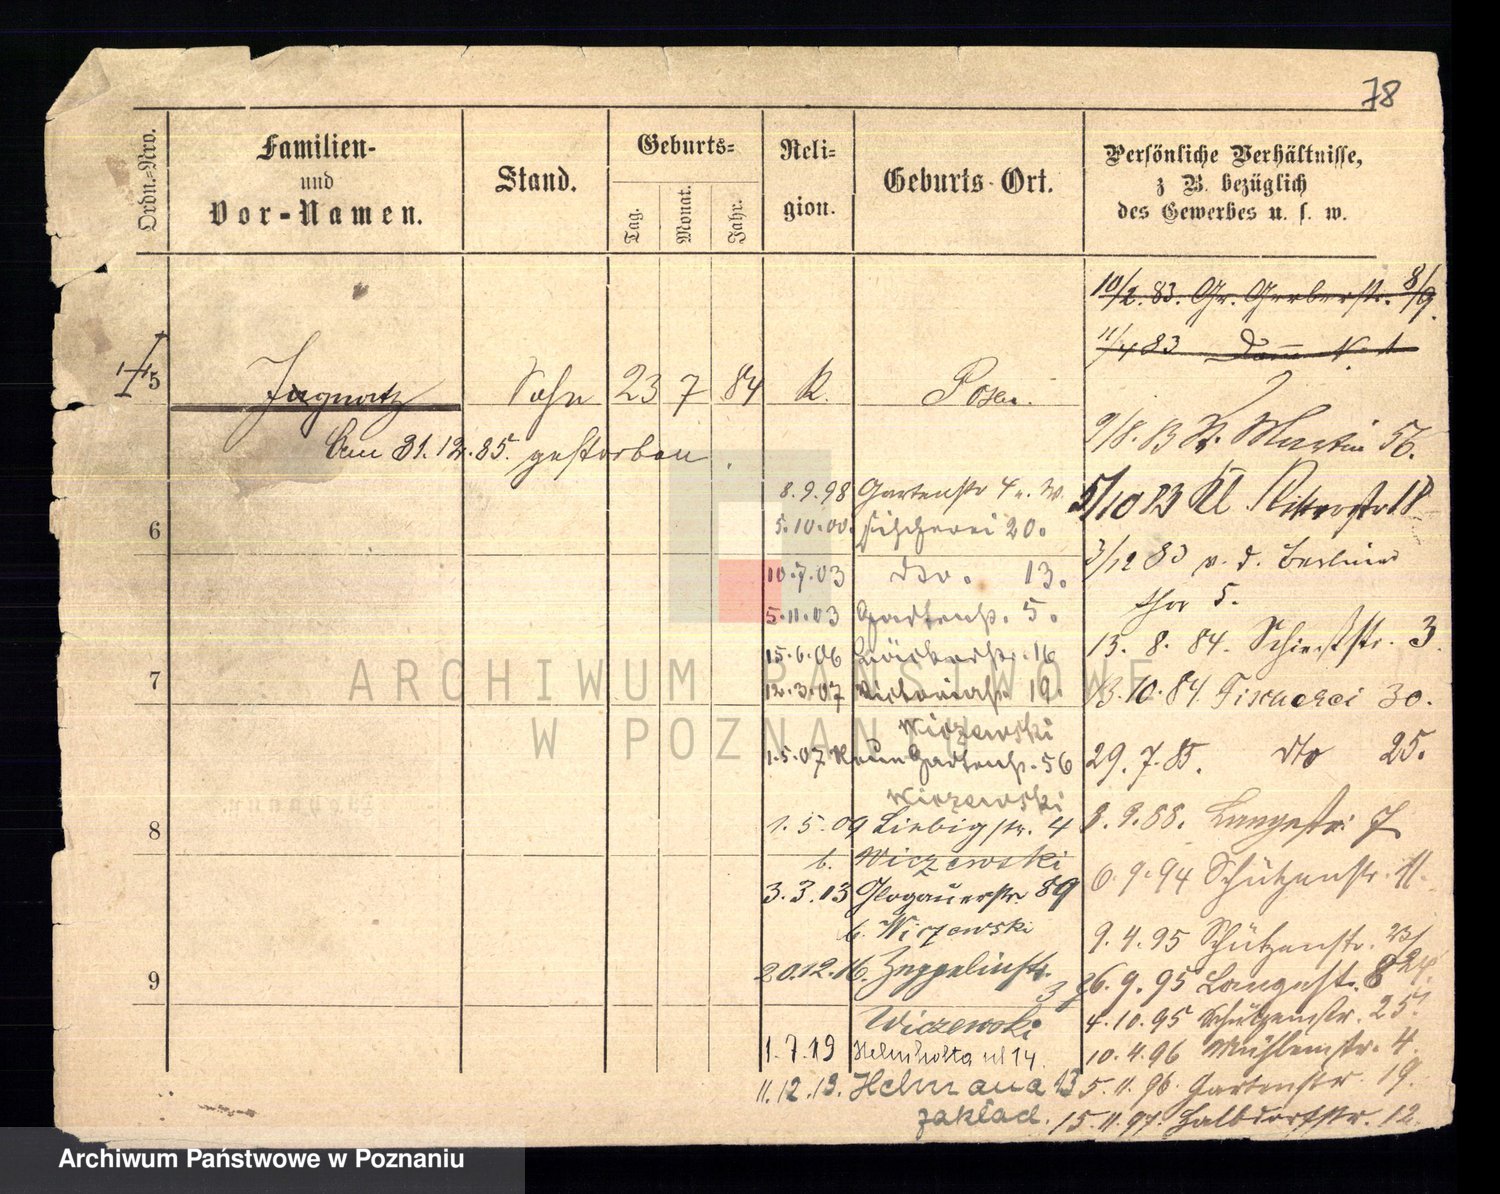 78
Ordn.-Nro.
Familien-
und
Vor-Namen.
Stand.
Geburts-
Tag.
Monat.
Jahr.
Reli-
gion.
Geburts-Ort.
Persönliche Verhältnisse,
z B. bezüglich
des Gewerbes u. s. w.
10/2. 83. Gr. Gerberstr. 8/9.
11/4 83 Dom N. 1
5 Sohn 23 7 84 K. Posen.
Am 31.12.85. gestorben.
9/8. 83 St. Martin 56.
8.9.98 Gartenstr 4 n. W.
5/10 83 Kl. Ritterstr 18
6
5.10.00. Fischerei 20.
3/12 83 v. d. Berliner
thor 5.
10.7.03 dto. 13.
5.11.03 Gartenstr. 5.
13. 8. 84. Schiesstr. 3.
15.6.06 16
7
12.3.07 Victoriastr. 19.
13.10.84. Fischerei 30.
Wiczewski
1.5.07 Neue Gartenstr. 56
29.7.85. dto 25.
Wiczewski
8
1.5.09 Liebigstr. 4
8.9.88. Langestr. 7
b. Wiczewski
6.9.94 Schützenstr. 11.
3.3.13 Glogauerstr. 89
b. Wiczewski
9.4.95 Schützenstr. 23/24.
9
20.12.16. Zeppelinstr.
37
26.9.95 Langestr. 8
Wiczewski
4.10.95 Schützenstr. 25.
1.7.19 Helmholta ul 14.
10.4.96 Mühlenstr. 4.
11.12.19. 13
5.11.96. Gartenstr. 19.
zakład.
15.11.97. Halbdorfstr. 12.
ARCHIWUM PAŃSTWOWE
W POZNANIU
Archiwum Państwowe w Poznaniu